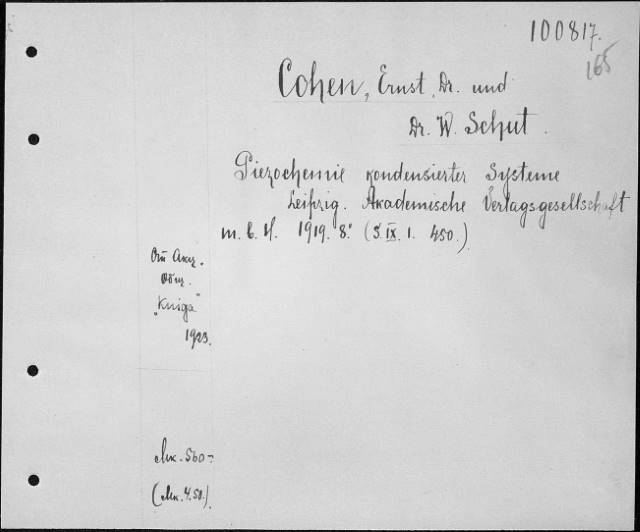 100817.
165
Cohen, Ernst, Dr. und
Dr. W. Schut.
Piezochemie kondensierter Systeme
Leipzig. Akademische Verlagsgesellschaft
m. b. H. 1919. 8°. (S. IX. 1. 450.)
От Акц.
Общ.
"Kniga"
1923.
Мк. 560-
(Мк. 4.50.)